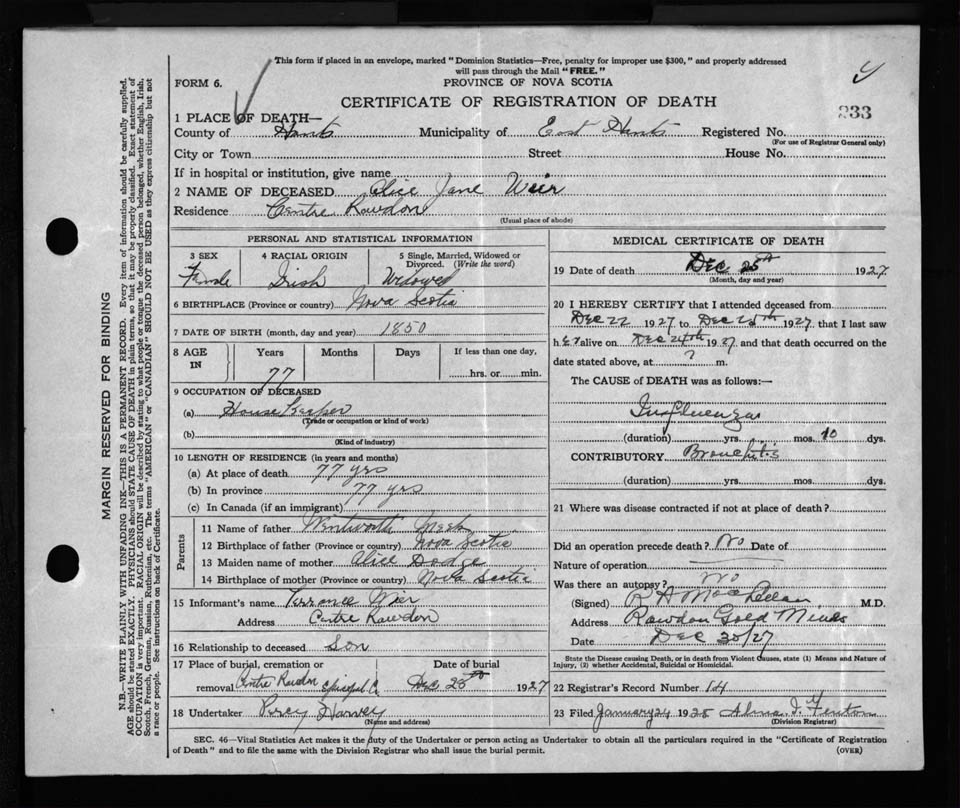 This form if placed in an envelope, marked "Dominion Statistics—Free, penalty for improper use $300," and properly addressed
will pass through the Mail "FREE."
FORM 6.
PROVINCE OF NOVA SCOTIA
CERTIFICATE OF REGISTRATION OF DEATH
233
1 PLACE OF DEATH—
County of Hants Municipality of East Hants Registered No.
(For use of Registrar General only)
City or Town Street House No.
If in hospital or institution, give name
2 NAME OF DECEASED Alice Jane Weir
Residence Centre Rawdon
(Usual place of abode)
MARGIN RESERVED FOR BINDING
N.B.—WRITE PLAINLY WITH UNFADING INK—THIS IS A PERMANENT RECORD. Every item of information should be carefully supplied.
AGE should be stated EXACTLY. PHYSICIANS should STATE CAUSE OF DEATH in plain terms, so that it may be properly classified. Exact statement of
OCCUPATION is very important. RACIAL ORIGIN will be described by stating to what people or tongue the deceased person belonged, whether English, Irish,
Scotch, French, German, Russian, Ruthenian, etc. The terms "AMERICAN" or "CANADIAN" SHOULD NOT BE USED as they express citizenship but not
a race or people. See instructions on back of Certificate.
PERSONAL AND STATISTICAL INFORMATION
3 SEX 4 RACIAL ORIGIN 5 Single, Married, Widowed or
Divorced. (Write the word)
Female Irish Widowed
6 BIRTHPLACE (Province or country) Nova Scotia
7 DATE OF BIRTH (month, day and year) 1850
8 AGE
IN
Years Months Days If less than one day,
77 hrs. or min.
9 OCCUPATION OF DECEASED
(a) House Keeper
(Trade or occupation or kind of work)
(b)
(Kind of industry)
10 LENGTH OF RESIDENCE (in years and months)
(a) At place of death 77 yrs
(b) In province 77 yrs
(c) In Canada (if an immigrant)
Parents
11 Name of father Wentworth Meek
12 Birthplace of father (Province or country) Nova Scotia
13 Maiden name of mother Alice Dodge
14 Birthplace of mother (Province or country) Nova Scotia
15 Informant's name Terrance Wier
Address Centre Rawdon
16 Relationship to deceased Son
17 Place of burial, cremation or Date of burial
removal Centre Rawdon Episcopal C Dec 28th 1927
18 Undertaker Percy Harvey
(Name and address)
MEDICAL CERTIFICATE OF DEATH
19 Date of death Dec 25th 1927
(Month, day and year)
20 I HEREBY CERTIFY that I attended deceased from
Dec 22 1927 to Dec 1927, that I last saw
her alive on Dec 24th 1927 and that death occurred on the
date stated above, at ? m.
The CAUSE of DEATH was as follows:—
Influenza
(duration) yrs. mos. 10 dys.
CONTRIBUTORY Bronchitis
(duration) yrs. mos. dys.
21 Where was disease contracted if not at place of death?
Did an operation precede death? No Date of
Nature of operation
Was there an autopsy? no
(Signed) R H MacLellan M.D.
Address Rawdon Gold Mines
Date Dec 30/27
State the Disease causing Death, or in death from Violent Causes, state (1) Means and Nature of
Injury, (2) whether Accidental, Suicidal or Homicidal.
22 Registrar's Record Number 14
23 Filed January 24 1928 Alma I. Fenton
(Division Registrar)
SEC. 46—Vital Statistics Act makes it the duty of the Undertaker or person acting as Undertaker to obtain all the particulars required in the "Certificate of Registration
of Death" and to file the same with the Division Registrar who shall issue the burial permit. (OVER)